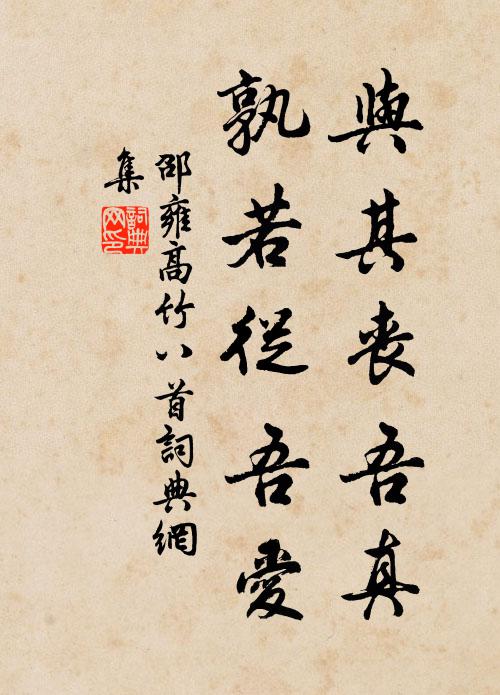 與其喪吾真
孰若從吾愛
邵雍高竹八首詞典網
集
詞典
网印